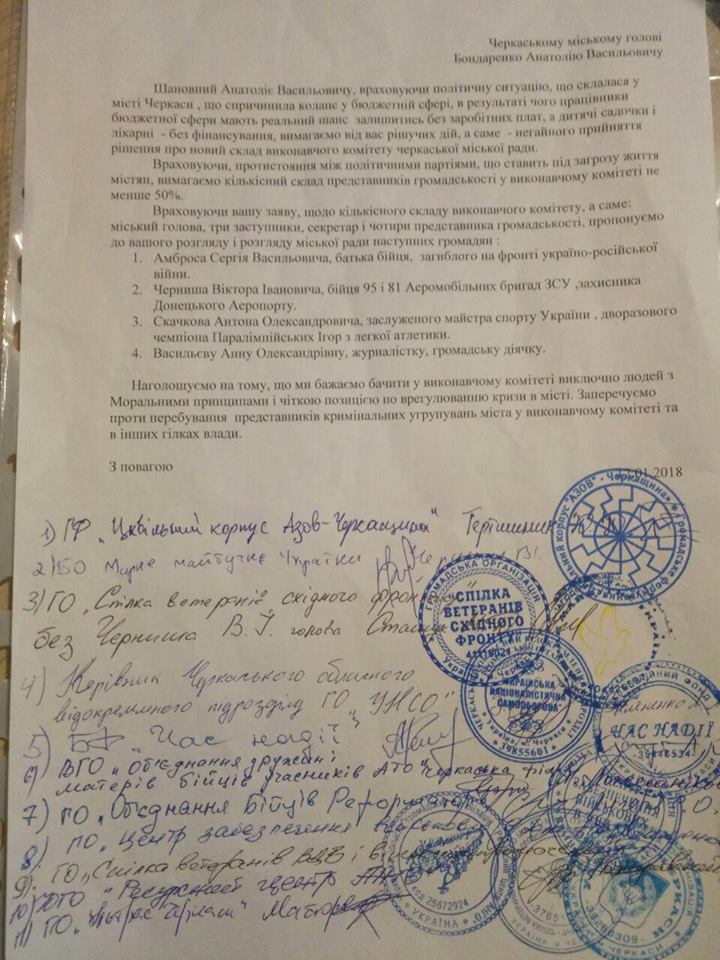 Черкаському міському голові
Бондаренко Анатолію Васильовичу
Шановний Анатоліє Васильовичу, враховуючи політичну ситуацію, що склалася у
місті Черкаси , що спричинила колапс у бюджетній сфері, в результаті чого працівники
бюджетної сфери мають реальний шанс залишитись без заробітних плат, а дитячі садочки і
лікарні - без фінансування, вимагаємо від вас рішучих дій, а саме - негайного прийняття
рішення про новий склад виконавчого комітету черкаської міської ради.
Враховуючи, протистояння між політичними партіями, що ставить під загрозу життя
містян, вимагаємо кількісний склад представників громадськості у виконавчому комітеті не
менше 50%.
Враховуючи вашу заяву, щодо кількісного складу виконавчого комітету, а саме:
міський голова, три заступники, секретар і чотири представника громадськості, пропонуємо
до вашого розгляду і розгляду міської ради наступних громадян :
1. Амброса Сергія Васильовича, батька бійця, загиблого на фронті україно-російської
війни.
2. Черниша Віктора Івановича, бійця 95 і 81 Аеромобільних бригад ЗСУ ,захисника
Донецького Аеропорту.
3. Скачкова Антона Олександровича, заслуженого майстра спорту України , дворазового
чемпіона Паралімпійських Ігор з легкої атлетики.
4. Васильєву Анну Олександрівну, журналістку, громадську діячку.
Наголошуємо на тому, що ми бажаємо бачити у виконавчому комітеті виключно людей з
Моральними принципами і чіткою позицією по врегулюванню кризи в місті. Заперечуємо
проти перебування представників кримінальних угрупувань міста у виконавчому комітеті та
в інших гілках влади.
З повагою
12.01.2018
1) ГФ "Цивільний корпус Азов-Черкащина"
2) БО Мирне майбутнє України
3) ГО "Спілка ветеранів східного фронту"
без Черниша В.І. голова
4) Керівник Черкаського обласного
відокремленого підрозділу ГО "УНСО"
5) БФ "Час надії"
6) ВГО "Об'єднання дружин і
матерів бійців учасників АТО" Черкаська філія
7) ГО "Об'єднання Бійців Реформаторів"
8) ГО "Центр забезпечення військов
9) ГО "Спілка ветеранів ВДВ і
10) "Ресурсний центр АТО"
11) ГО
корпус "АЗОВ" - Черкащина"
ГРОМАДСЬКА ОРГАНІЗАЦІЯ
"СПІЛКА
ВЕТЕРАНІВ
СХІДНОГО
ФРОНТУ"
УКРАЇНСЬКА
НАЦІОНАЛІСТИЧНА
САМООБОРОНА"
39855601
ЧАС НАДІЇ
39446534
КОД 25672924
УКРАЇНА
39256309
ЧЕРКАСИ